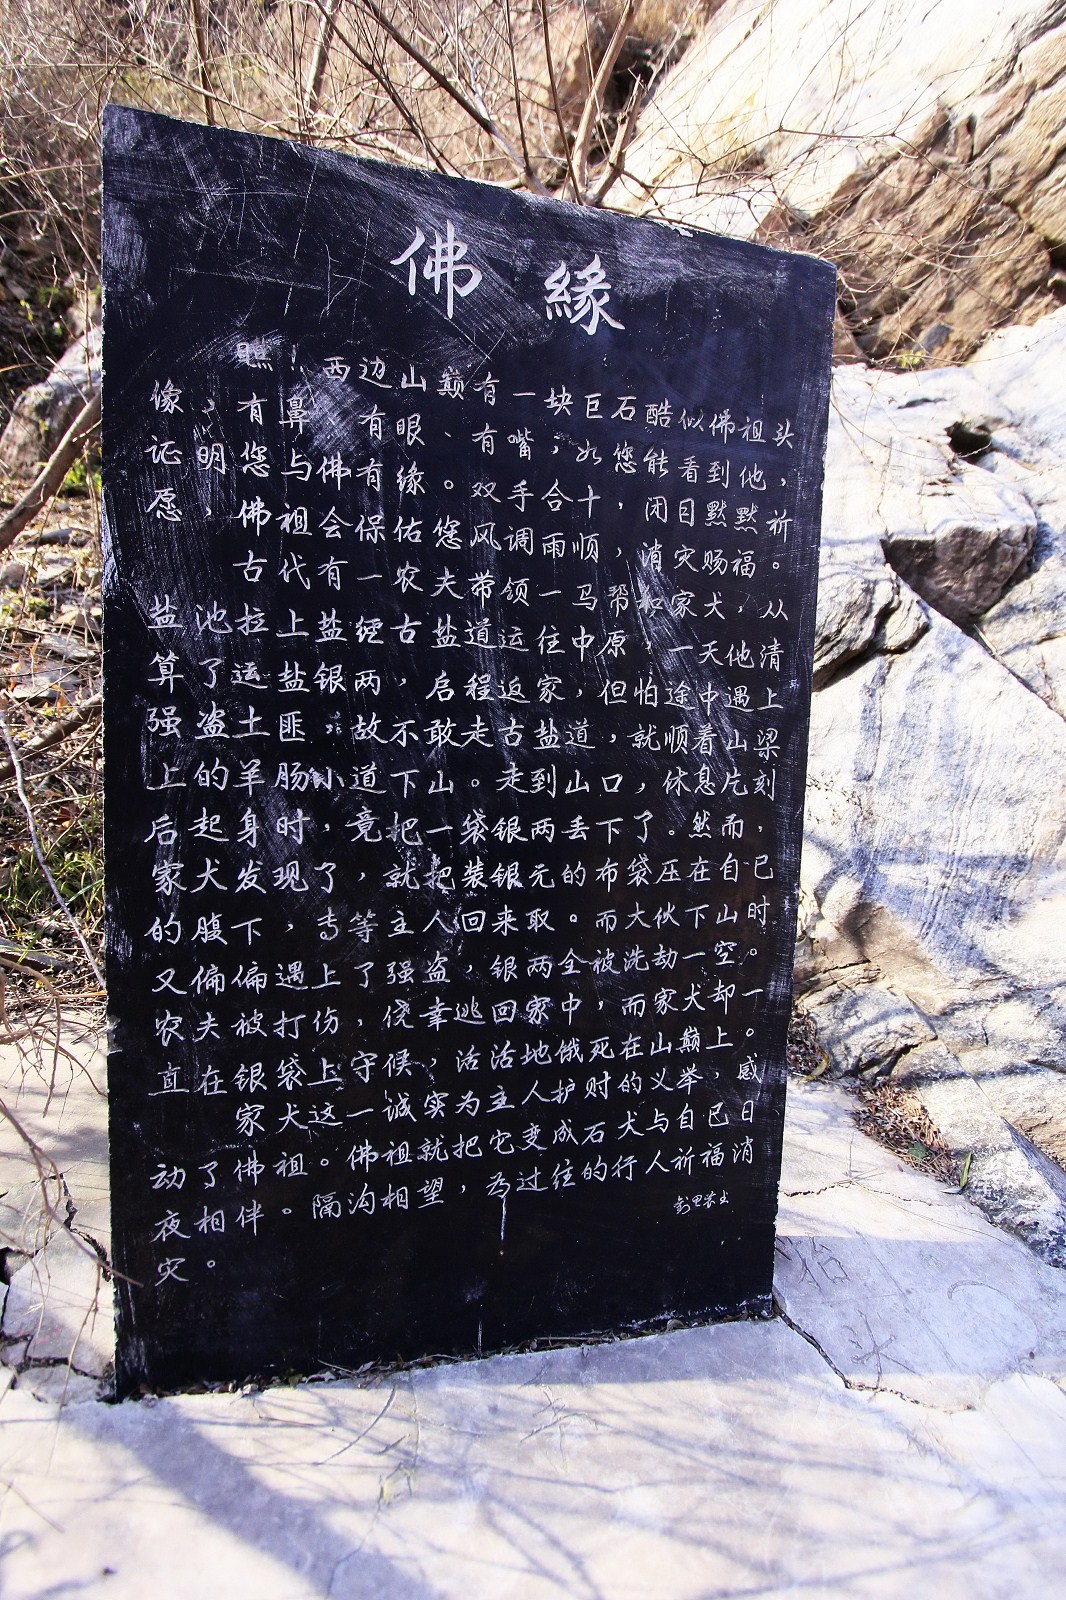 佛缘
瞧！西边山巅有一块巨石酷似佛祖头
像，有鼻、有眼、有嘴；如您能看到他，
证明，您与佛有缘。双手合十，闭目默默祈
愿，佛祖会保佑您风调雨顺，消灾赐福。
古代有一农夫带领一马帮和家犬，从
盐池拉上盐经古盐道运往中原，一天他清
算了运盐银两，启程返家，但怕途中遇上
强盗土匪，故不敢走古盐道，就顺着山梁
上的羊肠小道下山。走到山口，休息片刻
后起身时，竟把一袋银两丢下了。然而，
家犬发现了，就把装银元的布袋压在自已
的腹下，专等主人回来取。而大伙下山时
又偏偏遇上了强盗，银两全被洗劫一空。
农夫被打伤，侥幸逃回家中，而家犬却一
直在银袋上守候，活活地饿死在山巅上。
家犬这一诚实为主人护财的义举，感
动了佛祖。佛祖就把它变成石犬与自已日
夜相伴。隔沟相望，为过往的行人祈福消
灾。